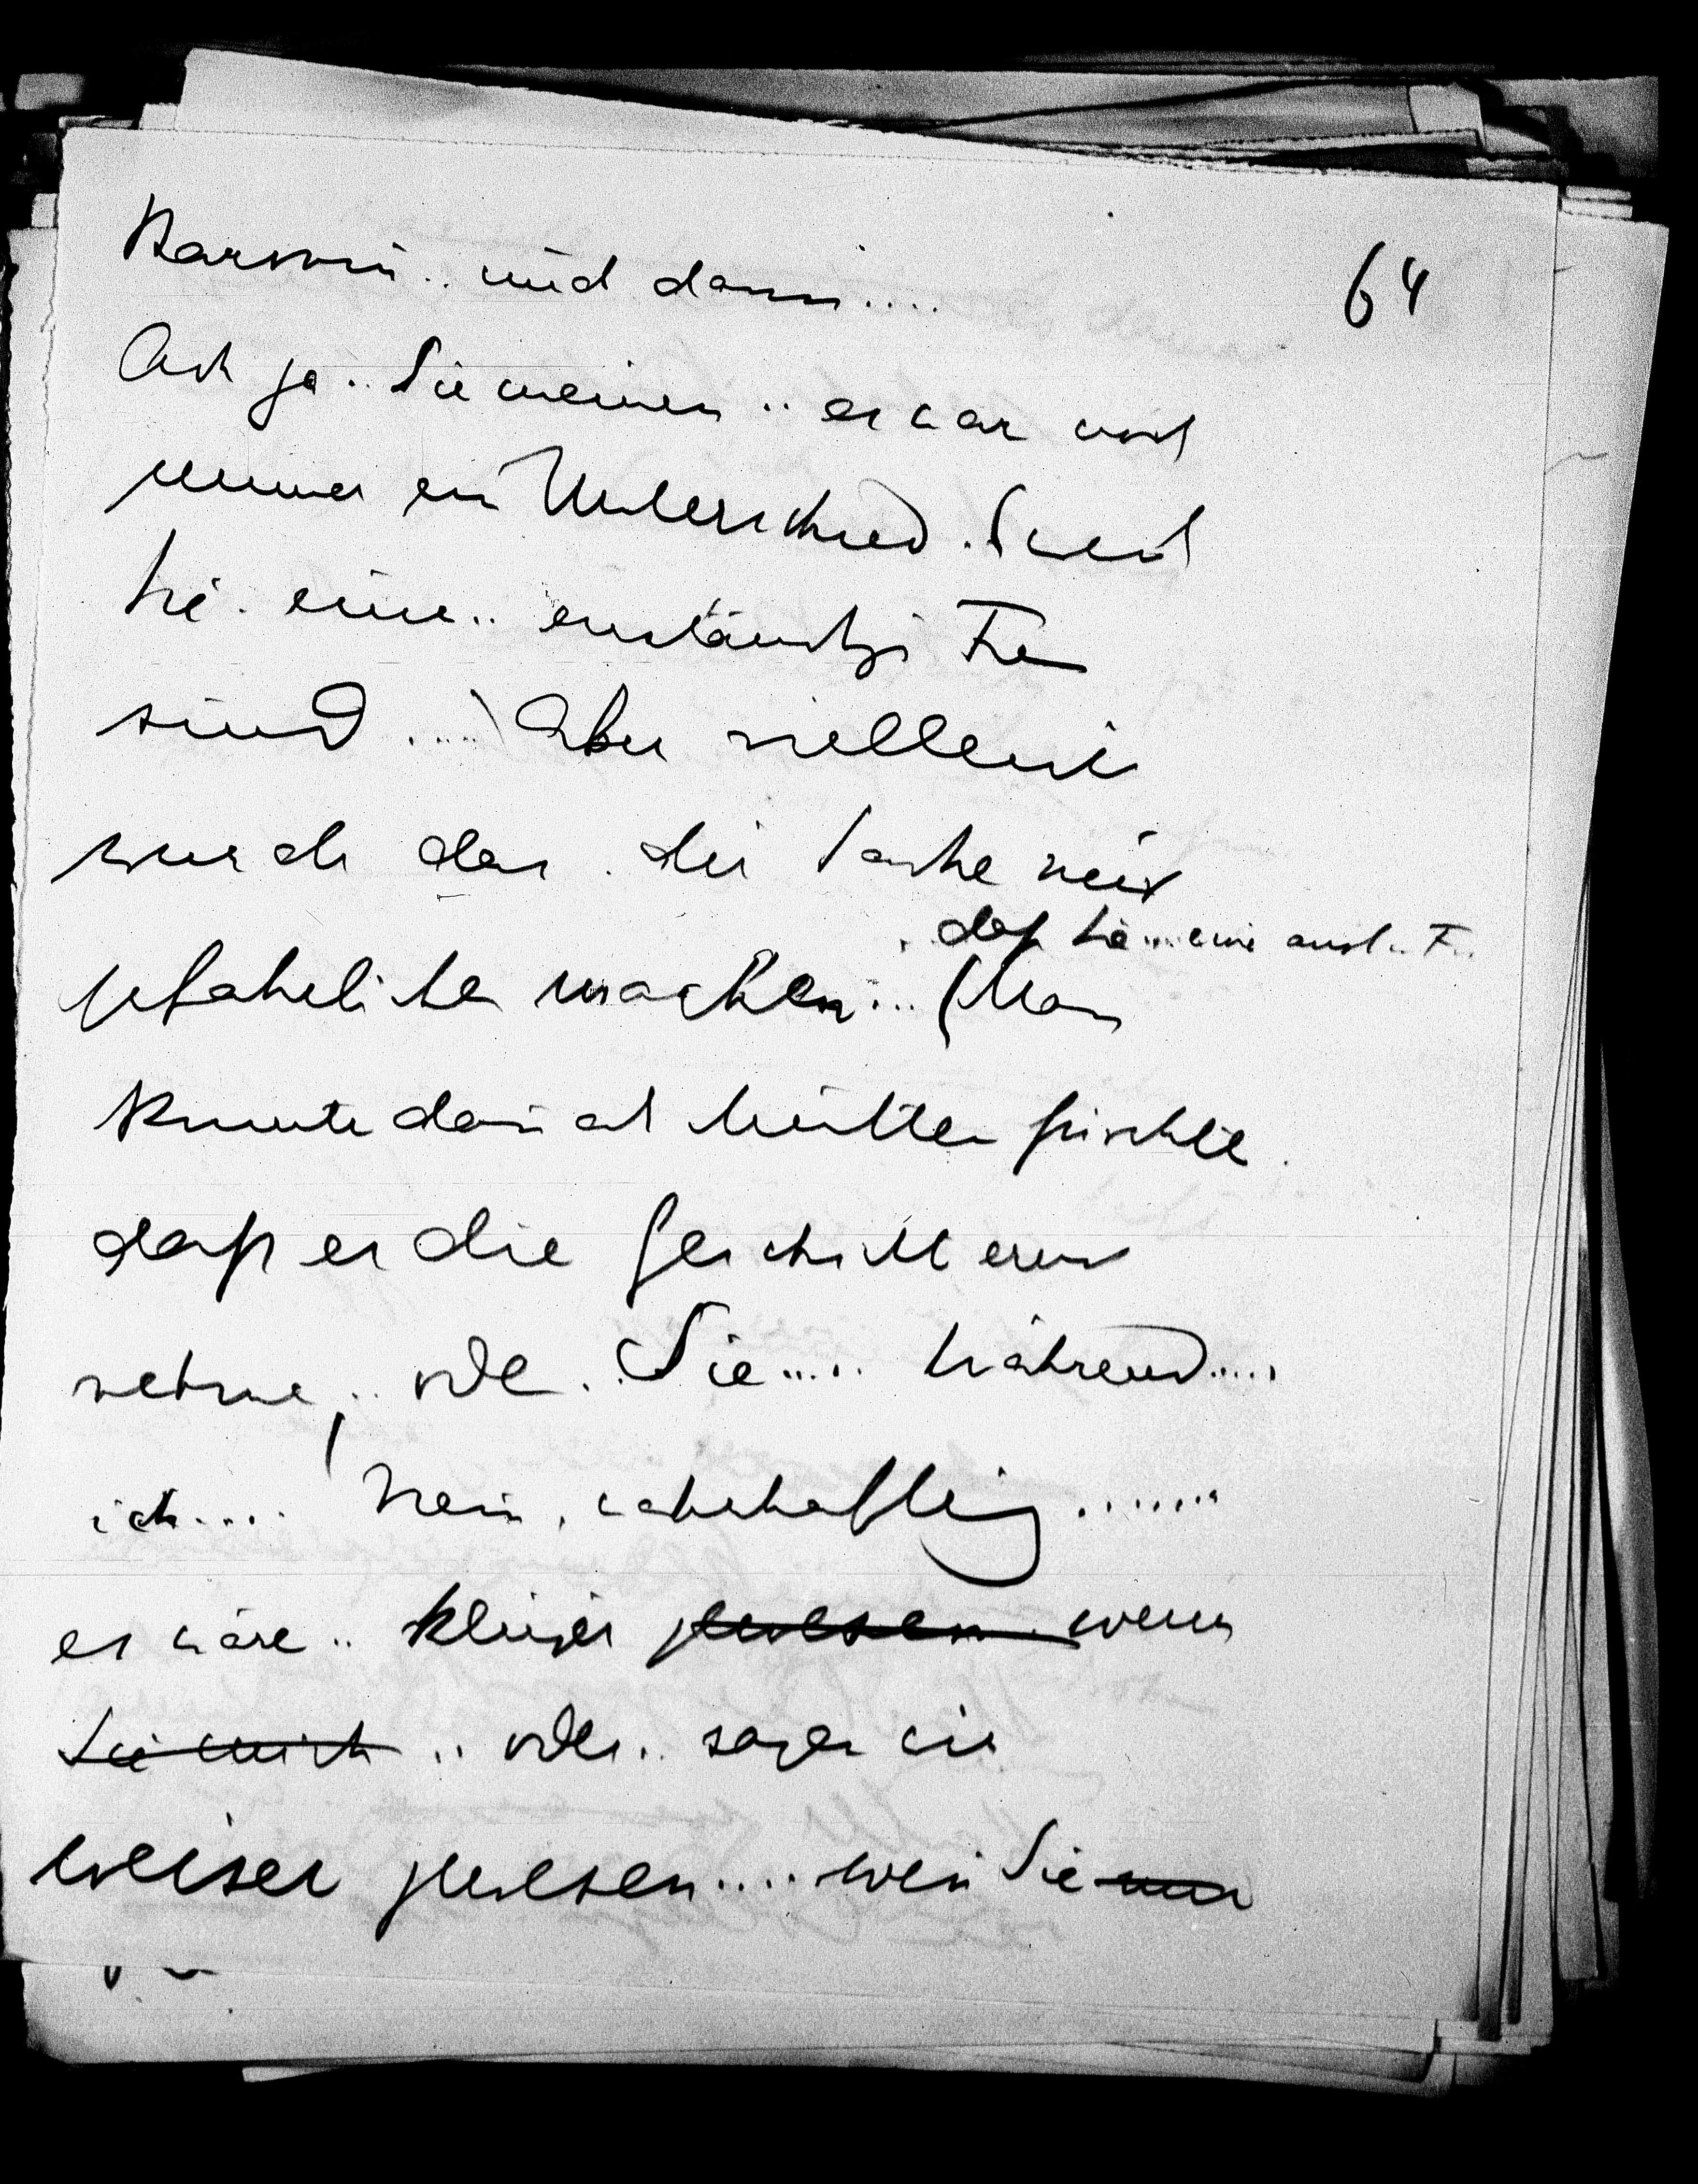 64
Baronin.. und dann....
Ach ja.. Sie meinen.. es war doch
immer ein Unterschied. Weil
Sie. eine.. anständige Frau
sind ..... Aber vielleicht
wurde das. die Sache nicht
daß Sie... eine anst.. F..
gefährlicher machen... (Man
könnte doch fürchten
daß er die Geschichte ernst
nehme,.. oder.. Sie..... Während.....
ich.... Nein, wahrhaftig.......
es wäre.. klüger gewesen wenn
Sie mich .. oder.. sagen wir
weiser gewesen.... wenn Sie